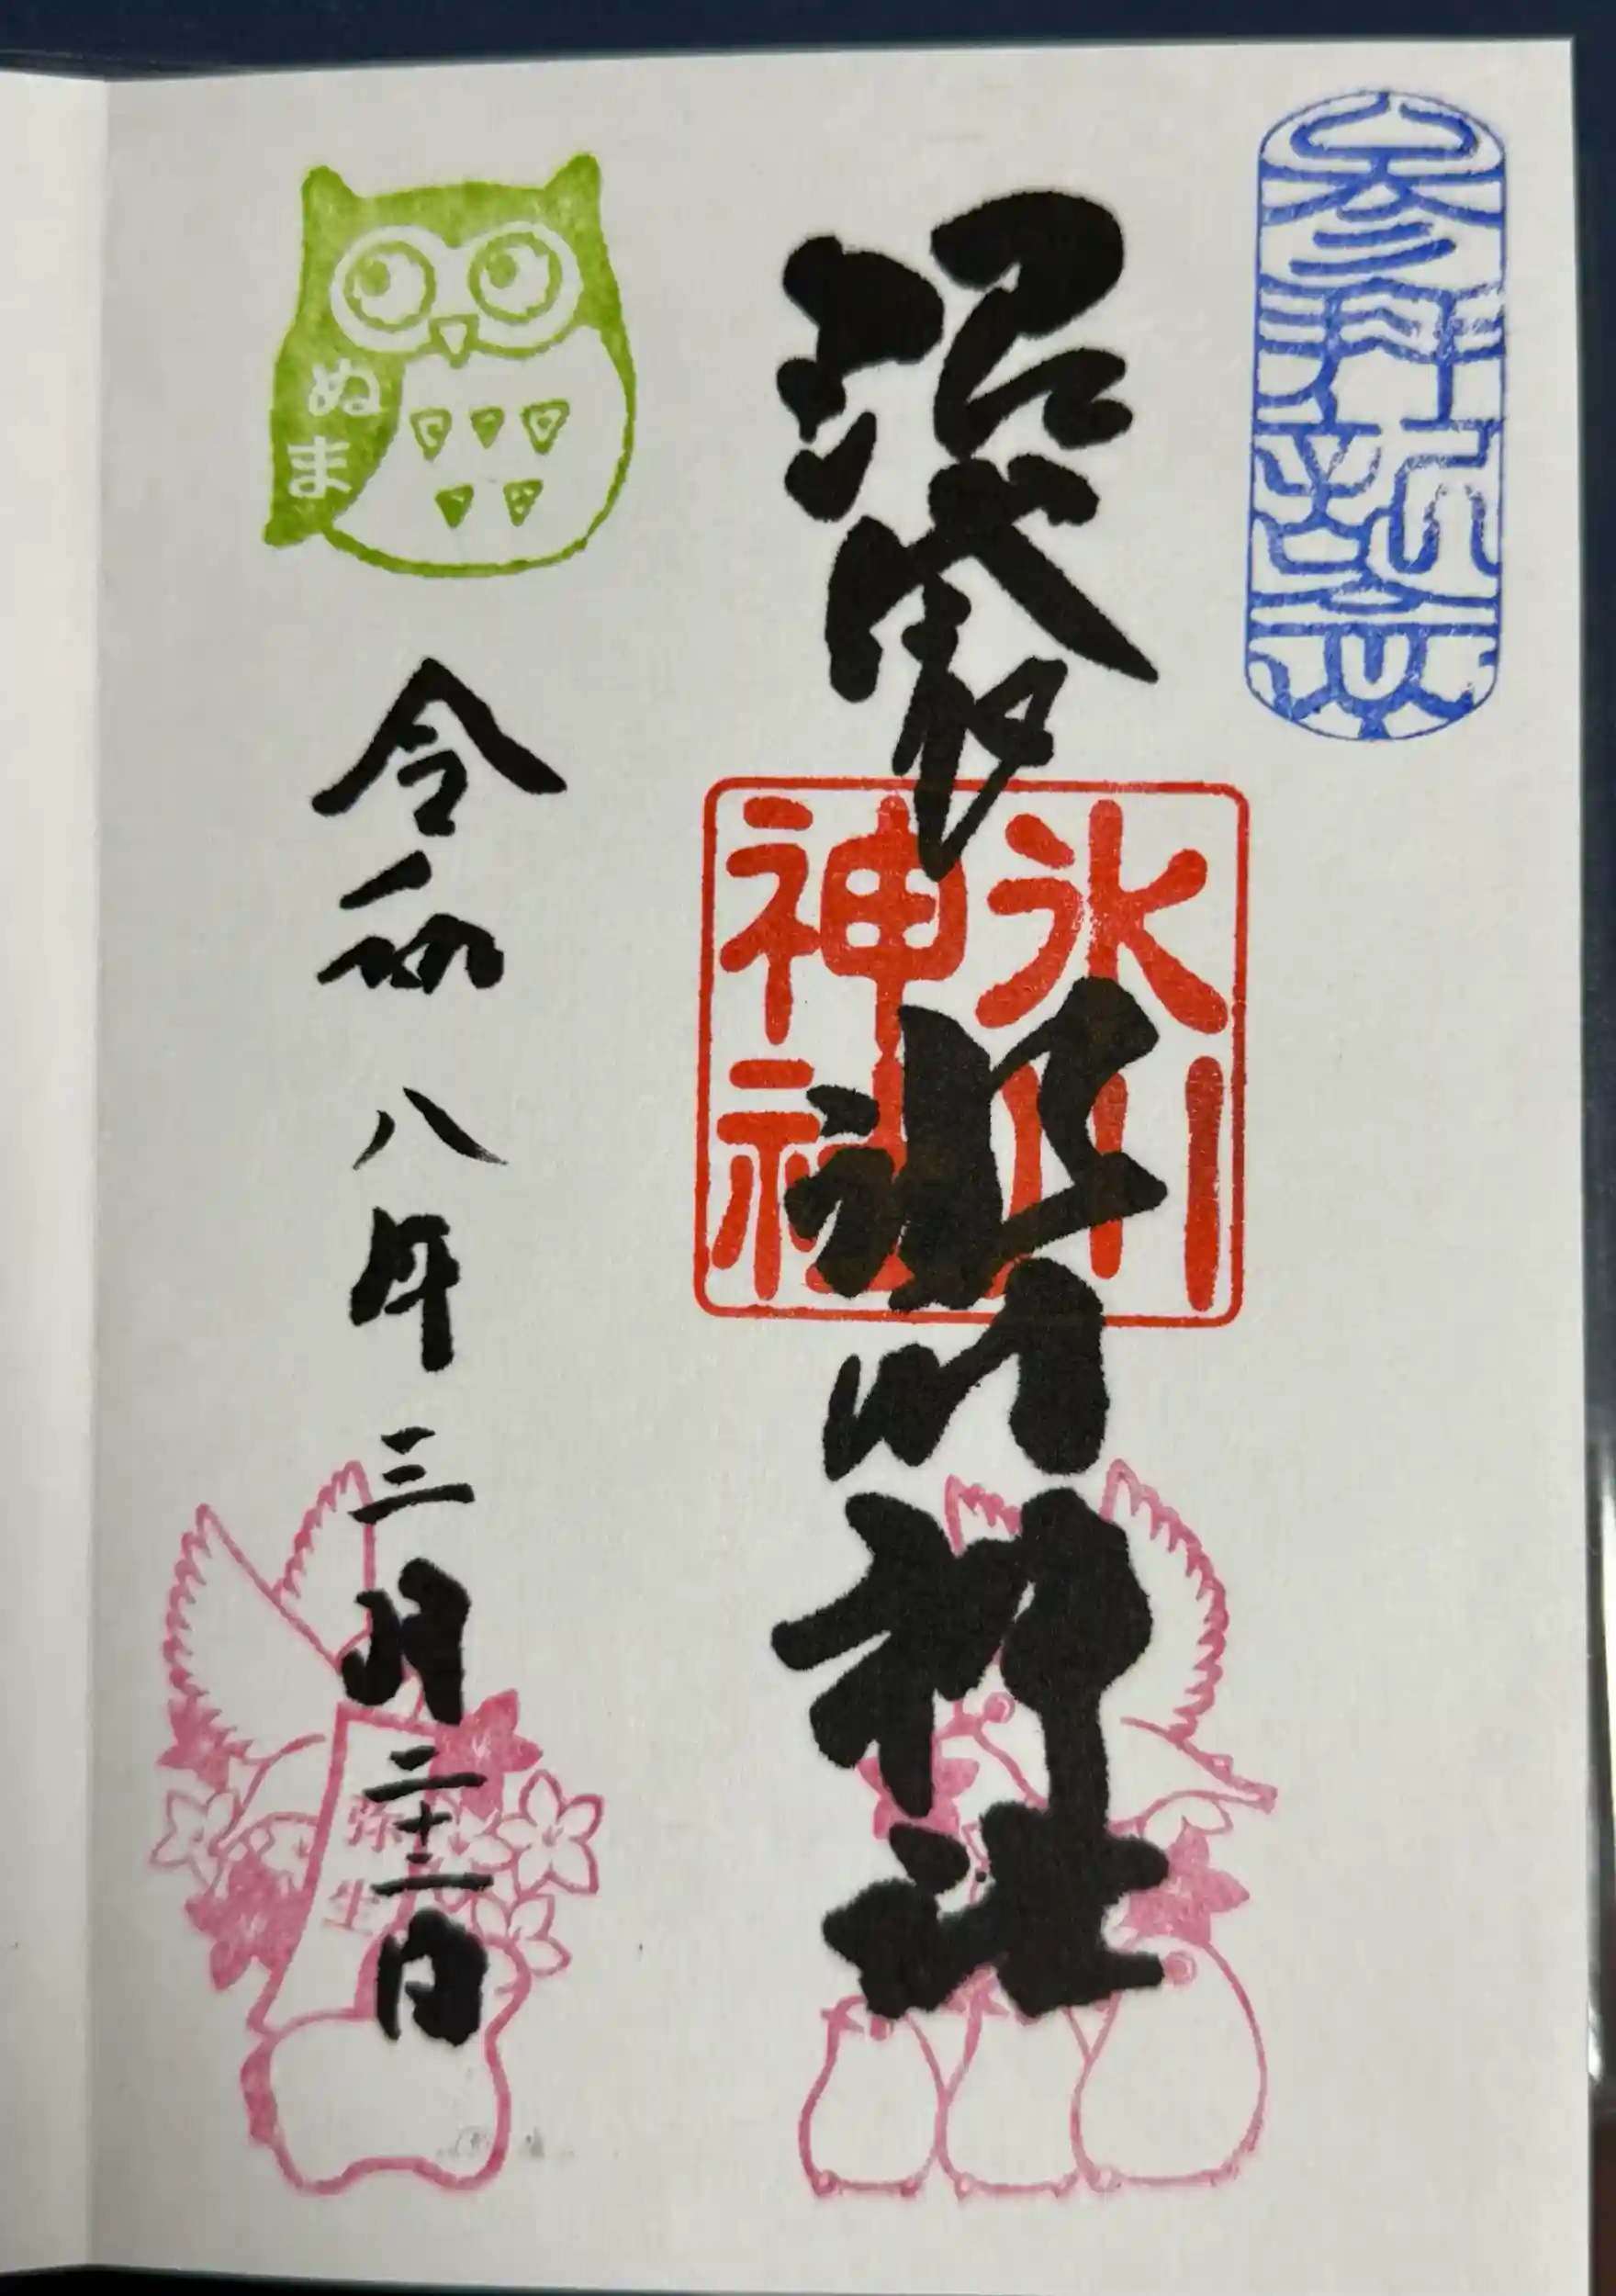 参拝記念
沼袋
氷川神社
氷川
神社
ぬま
令和八年三月二十二日
弥生